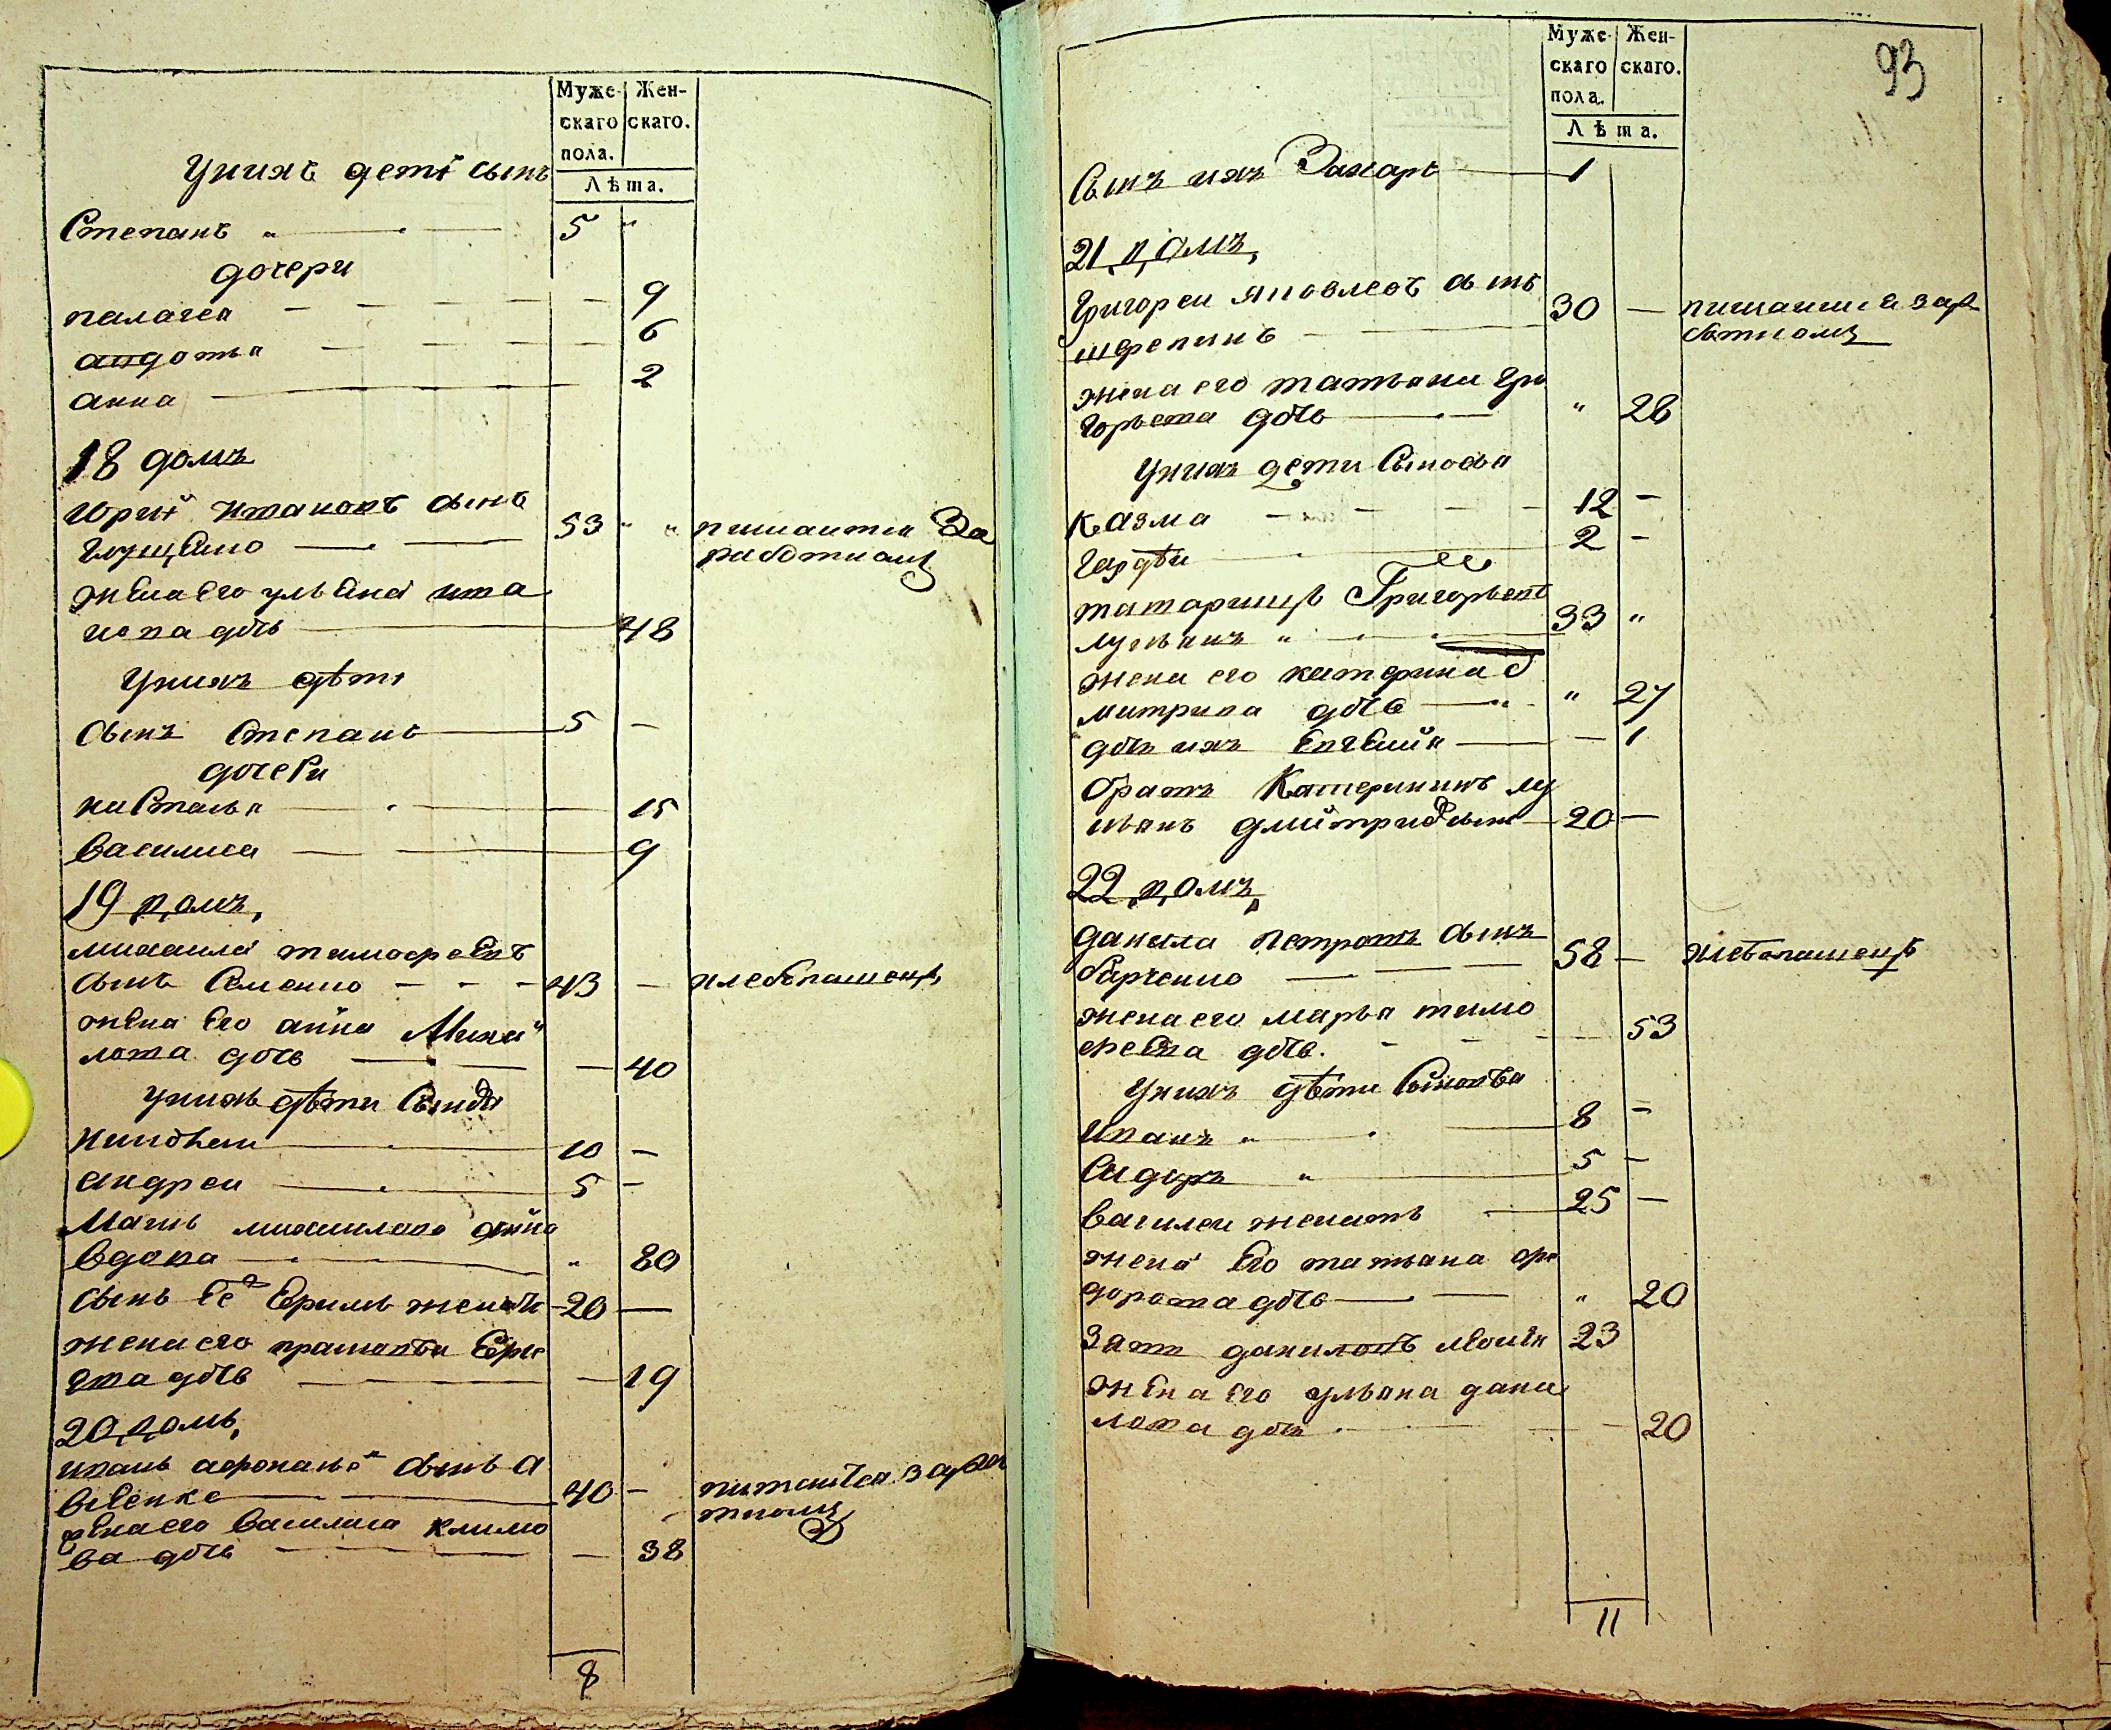 Муже- Жен-
скаго скаго.
пола.
Лѣта.
У нихъ дети сынъ
Степанъ 5 "
дочери
палагея 9
авдотья 6
анна 2
18 домъ
юрий ивановъ сынъ
53 " " питаится За
работкомъ
жена его ульяна ива
нова дочь 48
У нихъ дѣти
сынъ Степанъ 5 —
дочери
настасья 15
Василиса 9
19 домъ,
михаила тимофеевъ
сынъ Семенко 43 — хлебопашецъ
жена Его анна Михаи
лова дочь — 40
у нихъ дѣти Сыновя
10 —
андреи 5 —
Мать михаилова анна
вдова " 80
сынъ Ее Ефимъ женатъ 20 —
жена его прасковья
ва дочь — 19
20 домъ,
иванъ афонаньевъ сынъ
40 — питаится зарабо
ткомъ
жена его василиса климо
ва дочь — 38
8
93
Муже- Жен-
скаго скаго.
пола.
Лѣта.
Сынъ ихъ Захаръ 1
21 домъ,
Григореи яковлевъ сынъ
30 — питаится зара
боткомъ
жена его татьяна гри
горьева дочь " 28
У нихъ дети Сыновя
Казма 12 —
2 —
Григорьевъ
лукьянъ " 33 "
жена его катерина д
митрива дочь " 27
дочь ихъ Евгения — 1
братъ Катерининъ лу
кьянъ дмитривъ сынъ 20 —
22 домъ,
данила петровъ сынъ
58 — хлебопашецъ
жена его марья тимо
феева дочь. 53
У нихъ дѣти Сыновья
Иванъ " 8 —
Сидоръ " 5 —
василеи женатъ 25 —
жена Его татьяна фе
дорова дочь " 20
зять даниловъ 23
жена Его ульяна дани
лова дочь — 20
11